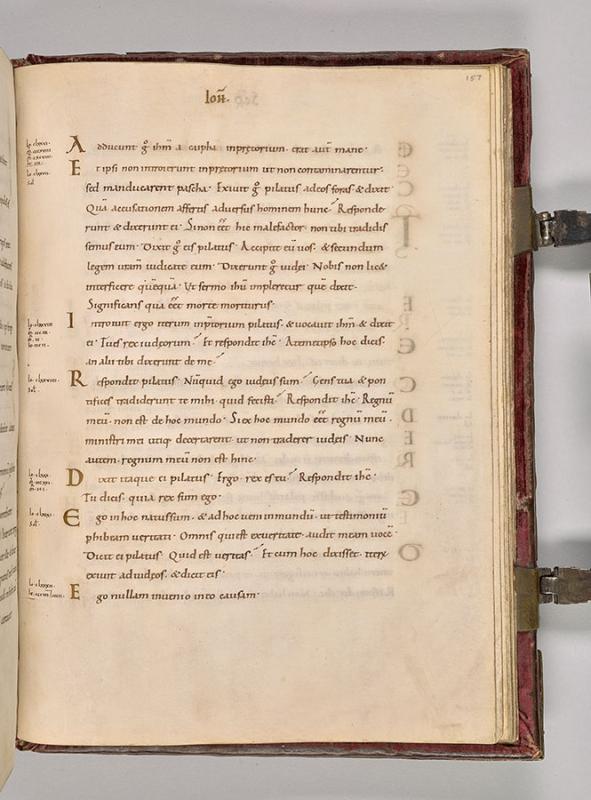 157
Ioħ.
Adducunt g̊ ihm̄ a caipha inpretorium. erat aut̄ mane.
Et ipsi non introierunt inpretorium ut non contaminarentur.
sed manducarent pascha. Exiuit g̊ pilatus adeos foras & dixit.
Quā accusationem affertis aduersus hominem hunc. Responde
runt & dixerunt ei. Sinon eēt hic malefactor. non tibi tradidis
semus eum. Dixit g̊ eis pilatus. Accipite eū uos. & secundum
legem uram̄ iudicate eum. Dixerunt g̊ iudei. Nobis non lic&
interficere quēquā. Ut sermo ihū impleretur quē dixit.
Significans qua eēt morte moriturus.
Introiuit ergo iterum inp̄torium pilatus. & uocauit ihm̄. & dixit
ei. Tu es rex iudęorum. Et respondit ihc̄. Atem&ipso hoc dicis.
an alii tibi dixerunt de me
Respondit pilatus. Nūquid ego iudęus sum. Gens tua & pon
tifices tradiderunt te mihi. quid fecisti. Respondit ihc̄. Regnū
meū. non est de hoc mundo. Si ex hoc mundo eēt regnū meū.
ministri mei utiq; decertarent. ut non traderer iudęis. Nunc
autem. regnum meū non est hinc.
Dixit itaque ei pilatus. Ergo. rex es tu. Respondit ihc̄.
Tu dicis. quia rex sum ego.
Ego in hoc natus sum. & ad hoc ueni in mundū. ut testimoniū
phibeam ueritati. Omnis qui est exueritate. audit meam uocē.
Dicit ei pilatus. Quid est ueritas. Et cum hoc dixisset. iterū
exiuit ad iudęos. & dicit eis.
Ego nullam inuenio in eo causam.